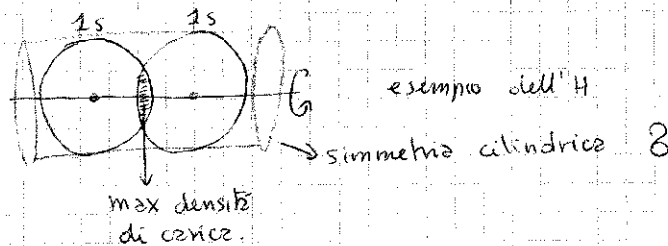 1s 1s
esempio dell'H
simmetria cilindrica
max densità
di carica.